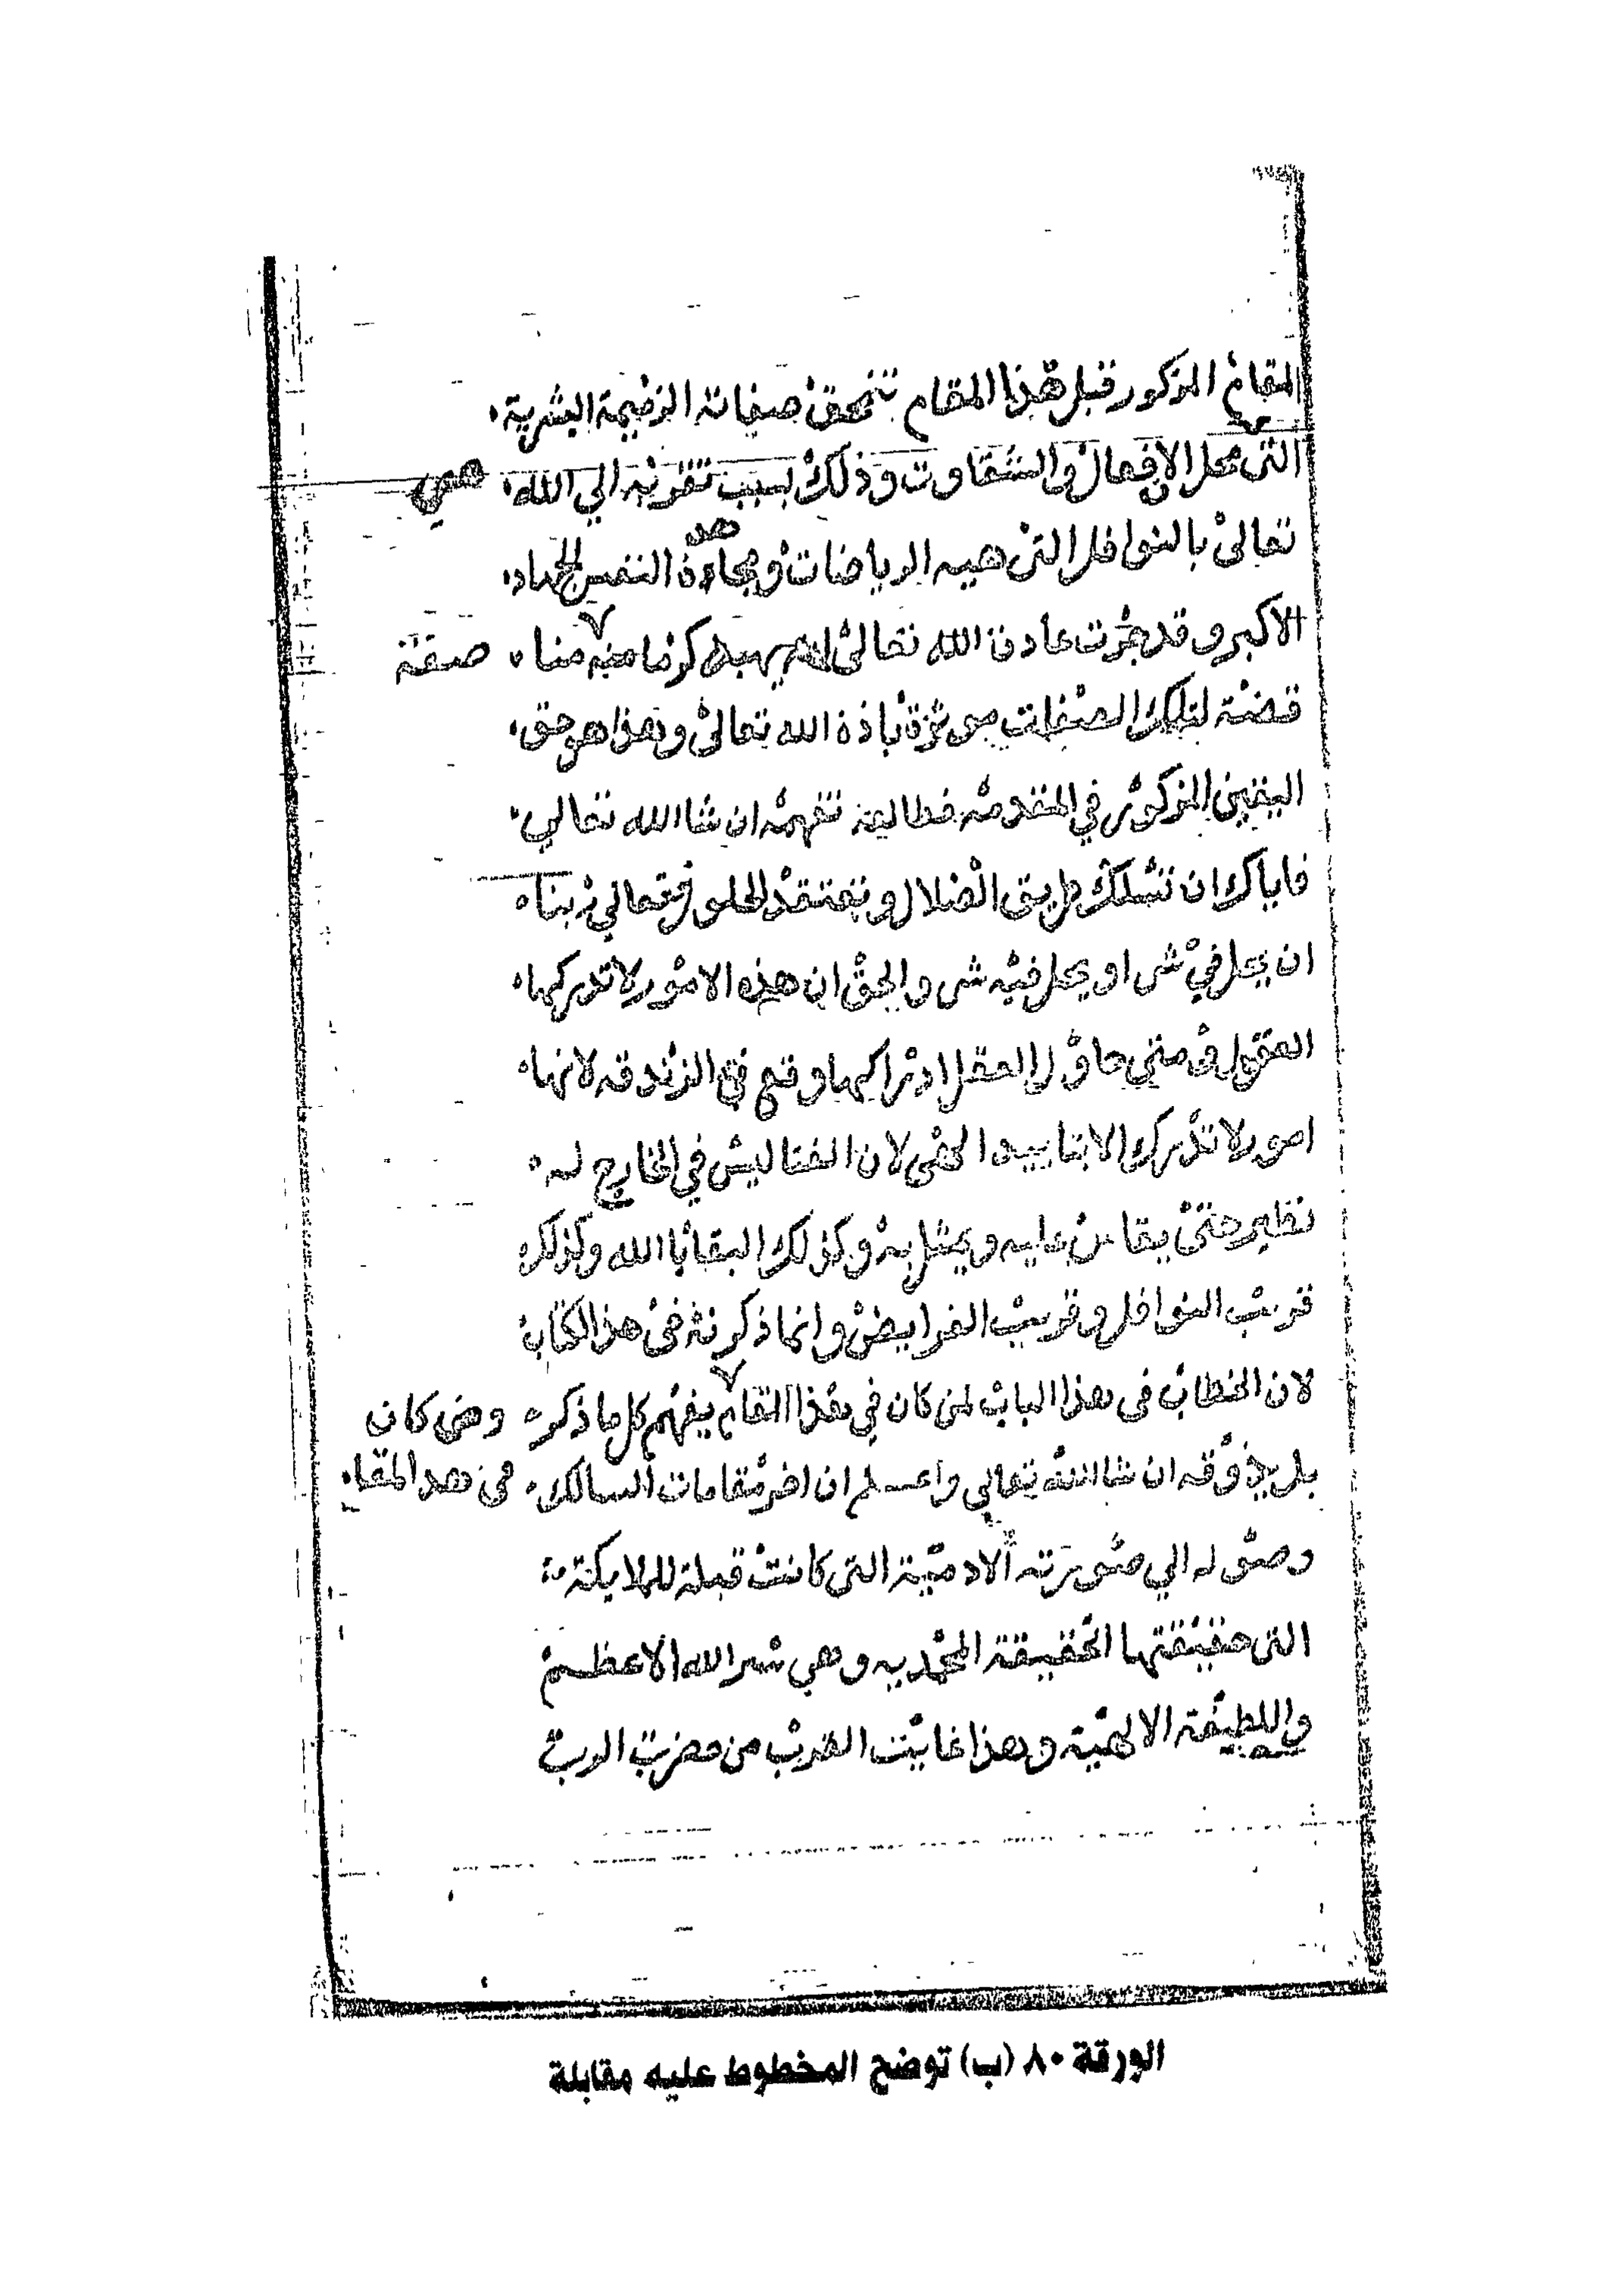 المقام المذكور قبل هذا المقام تنمحق صفاته الذميمة البشرية
التى محل الافعال والشقاوت وذلك بسبب تقربه الي الله هي
تعالى بالنوافل التى هيه الرياضات ومجاهدة النفس الجهاد
الاكبر وقد جرت عادة الله تعالى كرما منه منا صفة
لتلك الصفات باذن الله تعالى وهذا هو حق
اليقين المذكور في المقدمه فطالعه تفهمه ان شاالله تعالي
فاياك ان تسلك طريق الضلال وتعتقد الحلول تعالي ربنا
ان يحل في شى او يحل فيه شى والحق ان هذه الامور لا تدركها
العقول ومتى حاول العقل ادراكها وقع في الزندقه لانها
امور لا تدرك الا بتاييد الهى لان الفنا ليس في الخارج له
نظير حتى يقاس عليه ويمثل به وكذلك البقا باالله وكذلك
قرب النوافل وقرب الفرايض وانما ذكرته فى هذا الكتاب
لان الخطاب فى هذا الباب لمن كان في هذا المقام يفهم كل ما ذكر ومن كان
بل يذوقه ان شاالله تعالي واعلم ان اخر مقامات السالك فى هدالمقا
وصوله الي صورته الادمية التى كانت قبلة للملايكة
التى حقيقتها الحقيقة المحمديه وهي سر الله الاعظم
واللطيفة الالهية وهذا غايت القرب من حضرت الرب
الورقة ٨٠ (ب) توضح المخطوط عليه مقابلة